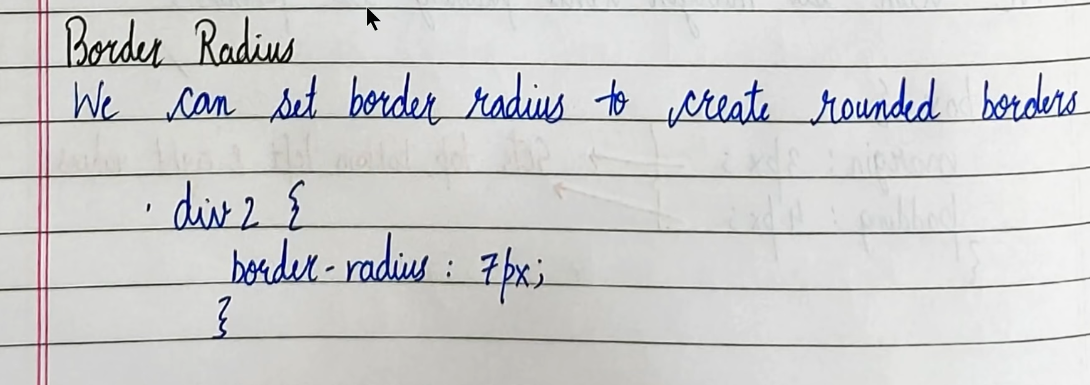 Border Radius
We can set border radius to create rounded borders
. div2 {
border-radius : 7px;
}